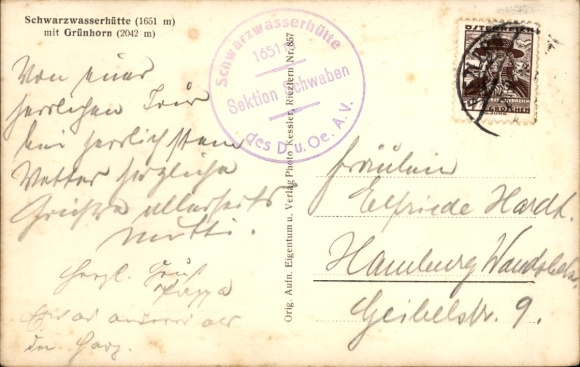 Schwarzwasserhütte (1651 m)
mit Grünhorn (2042 m)
Von einer
herrlichen Tour
bei herrlichstem
Wetter herzliche
Grüsse allerseits
Mutti.
Herzl. Gruß
Pappa
der Harz.
Schwarzwasserhütte
1651 m
Sektion Schwaben
des D. u. Oe. A. V.
Orig. Aufn. Eigentum u. Verlag Photo Kessler, Riezlern Nr. 857
ÖSTERREICH
GROSCHEN
Fräulein
Elfriede Hardt.
Hamburg Wandsbek
Geibelstr. 9.